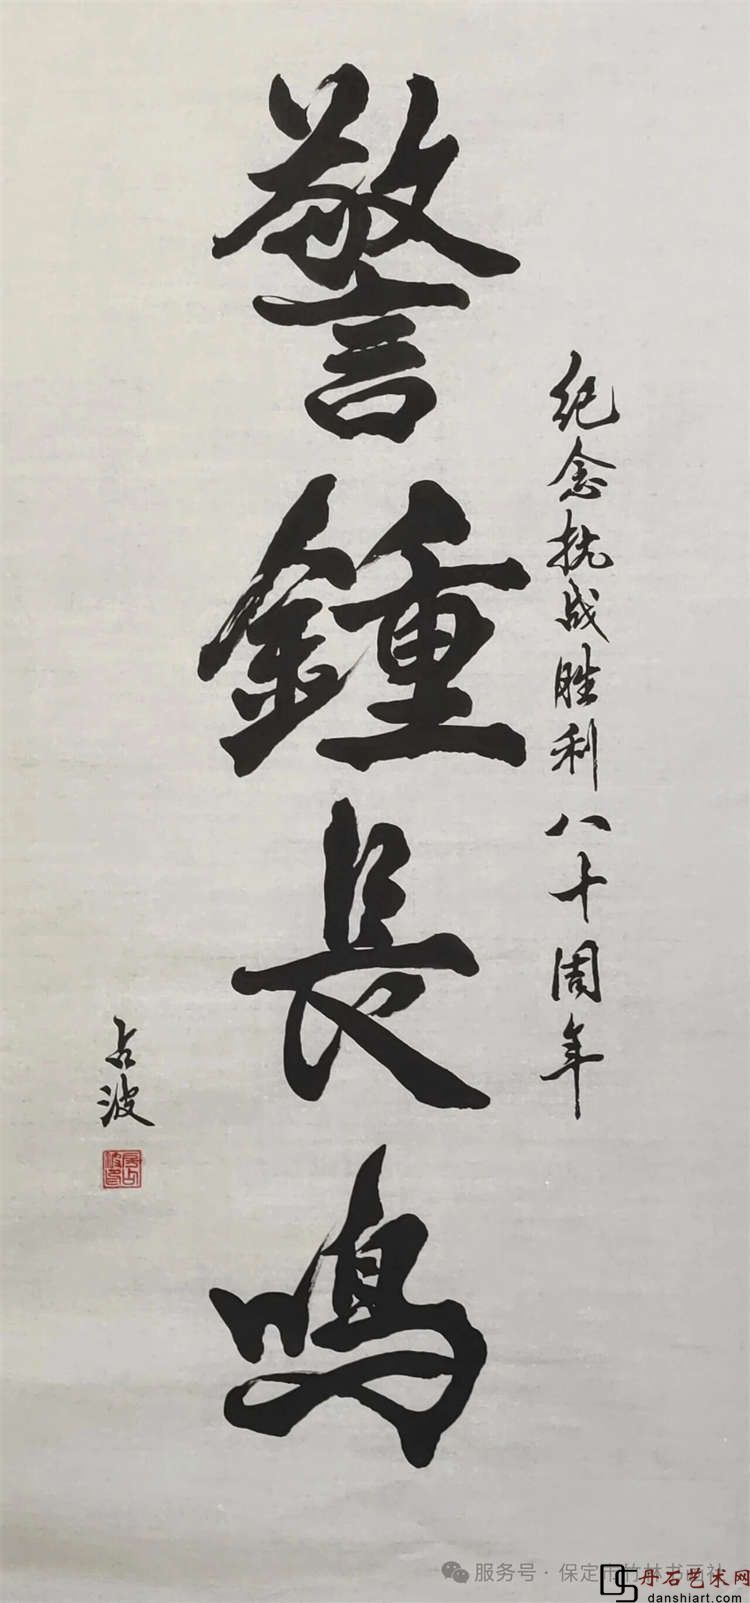 纪念抗战胜利八十周年
警鍾長鳴
占波
服务号·保定市竹林书画社
丹石艺术网
danshiart.com